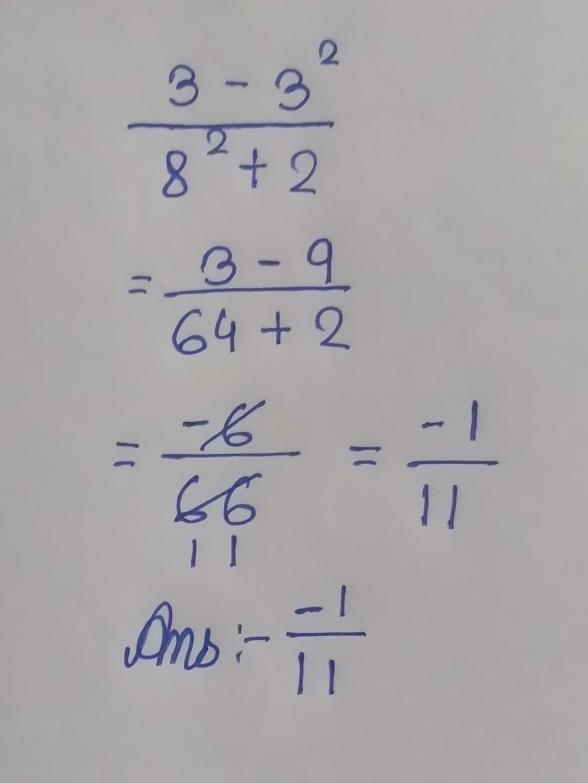 3 - 3²
8² + 2
= 3 - 9
64 + 2
= -6 = -1
66 11
11
Ans :- -1
11